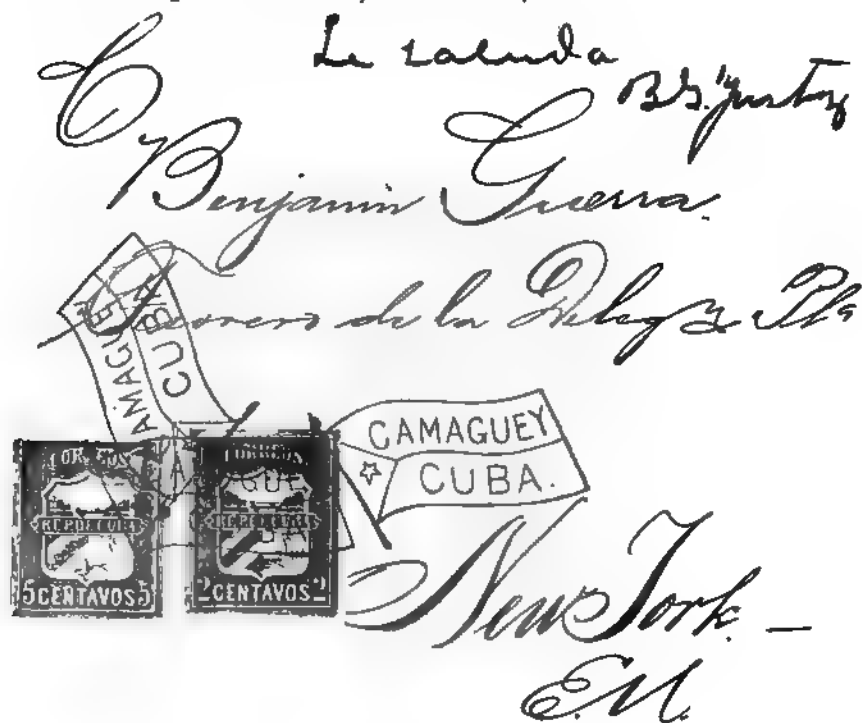 Le saluda
C
Benjamin Guerra.
Tesorero de la Deleg
CAMAGUEY
CUBA
CAMAGUEY
CUBA.
CORREOS
REP DE CUBA
5 CENTAVOS 5
CORREOS
REP DE CUBA
2 CENTAVOS 2
New York –
E.U.